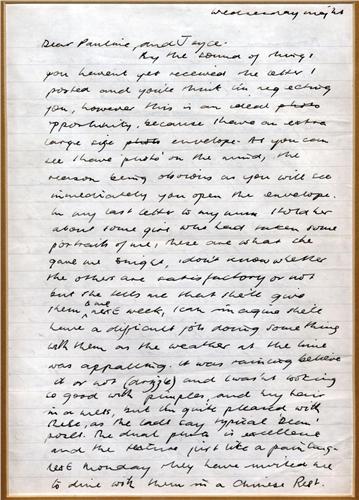 Wednesday night
Dear Pauline, and Joyce.
By the sound of things
you havent yet received the letter I
posted and you're think im neglecting
you, however this is an ideal photo
opportunity, because I have an extra
large size photo envelope. As you can
see I have 'photo' on the mind, the
reason being obvious as you will see
immediately you open the envelope.
In my last letter to my mum I told her
about some girl who had taken some
portraits of me, these are what she
gave me tonight, I don't know whether
the others are satisfactory or not
but she tells me that she'll give
them to me next week, I can imagine she'll
have a difficult job doing something
with them as the weather at the time
was appalling. It was raining believe
it or not (drizzle) and I wasn't looking
so good with pimples, and my hair
in a mess, but im quite pleased with
these, as the lads say typical
poses. The dual photo is excellent
and the texture just like a painting.
Next Monday they have invited me
to dine with them in a Chinese Rest.